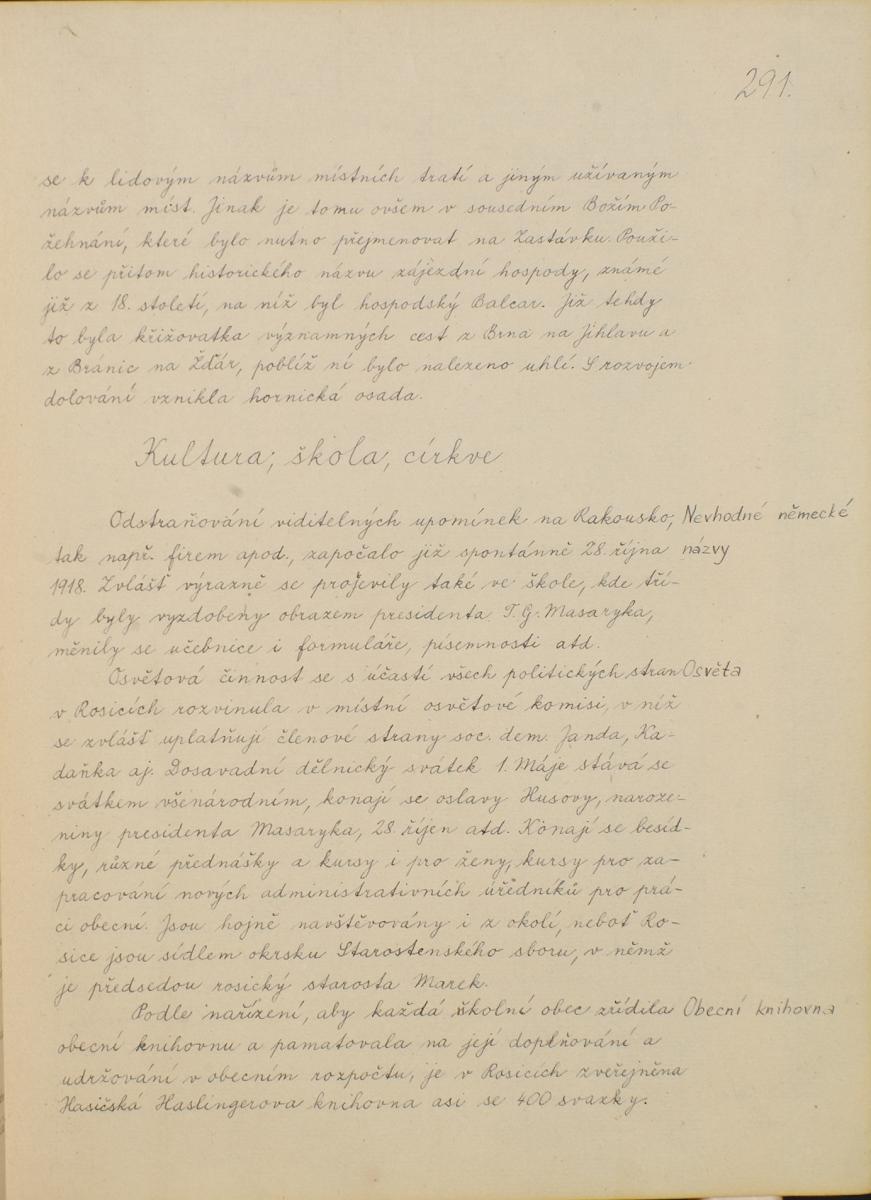 291.
se k lidovým názvům místních tratí a jiným užívaným
názvům míst. Jinak je tomu ovšem v sousedním Božím Po-
žehnání, které bylo nutno přejmenovat na Zastávku. Použi-
lo se přitom historického názvu zájezdní hospody, známé
již z 18. století, na níž byl hospodský Balcar. Již tehdy
to byla křižovatka významných cest z Brna na Jihlavu a
z Bránic na Žďár, poblíž ní bylo nalezeno uhlí. S rozvojem
dolování vznikla hornická osada.
Kultura, škola, církve
Odstraňování viditelných upomínek na Rakousko, Nevhodné německé
tak např. firem apod., započalo již spontánně 28. října názvy
1918. Zvlášť výrazně se projevily také ve škole, kde tří-
dy byly vyzdobeny obrazem presidenta T. G. Masaryka,
měnily se učebnice i formuláře, písemnosti atd.
Osvětová činnost se s účastí všech politických stran Osvěta
v Rosicích rozvinula v místní osvětové komisi, v níž
se zvlášť uplatňují členové strany soc. dem. Janda, Ka-
daňka aj. Dosavadní dělnický svátek 1. Máje stává se
svátkem všenárodním, konají se oslavy Husovy, naroze-
niny presidenta Masaryka, 28. říjen atd. Konají se besíd-
ky, různé přednášky a kursy i pro ženy, kursy pro za-
pracování nových administrativních úředníků pro prá-
ci obecní. Jsou hojně navštěvovány i z okolí, neboť Ro-
sice jsou sídlem okrsku Starostenského sboru, v němž
je předsedou rosický starosta Marek.
Podle nařízení, aby každá školní obec zřídila Obecní knihovna
obecní knihovnu a pamatovala na její doplňování a
udržování v obecním rozpočtu, je v Rosicích zveřejněna
Hasičská Haslingerova knihovna asi se 400 svazky.